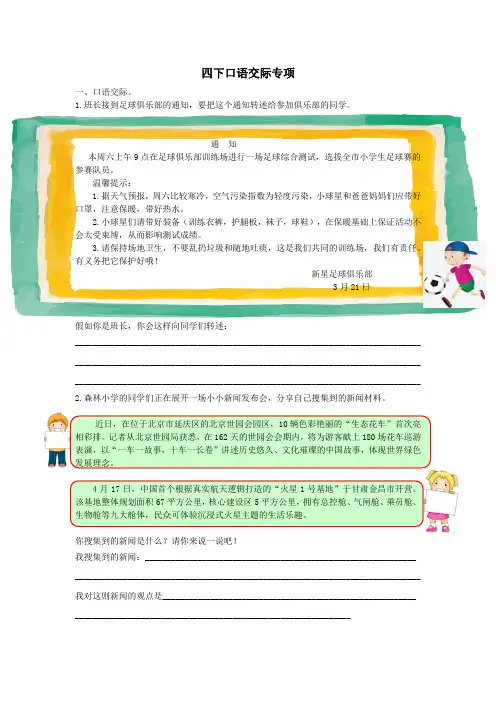 四下口语交际专项
一、口语交际。
1.班长接到足球俱乐部的通知，要把这个通知转述给参加俱乐部的同学。
通 知
本周六上午9点在足球俱乐部训练场进行一场足球综合测试，选拔全市小学生足球赛的
参赛队员。
温馨提示：
1.据天气预报，周六比较寒冷，空气污染指数为轻度污染，小球星和爸爸妈妈们应带好
口罩，注意保暖，带好热水。
2.小球星们请带好装备（训练衣裤，护腿板，袜子，球鞋），在保暖基础上保证活动不
会太受束缚，从而影响测试成绩。
3.请保持场地卫生，不要乱扔垃圾和随地吐痰，这是我们共同的训练场，我们有责任、
有义务把它保护好哦！
新星足球俱乐部
3月21日
假如你是班长，你会这样向同学们转述：
2.森林小学的同学们正在展开一场小小新闻发布会，分享自己搜集到的新闻材料。
近日，在位于北京市延庆区的北京世园会园区，10辆色彩艳丽的“生态花车”首次亮
相彩排。记者从北京世园局获悉，在162天的世园会会期内，将为游客献上180场花车巡游
表演，以“一车一故事，十车一长卷”讲述历史悠久、文化璀璨的中国故事，体现世界绿色
发展理念。
4月17日，中国首个根据真实航天逻辑打造的“火星1号基地”于甘肃金昌市开营。
该基地整体规划面积67平方公里，核心建设区5平方公里，拥有总控舱、气闸舱、乘员舱、
生物舱等九大舱体，民众可体验沉浸式火星主题的生活乐趣。
你搜集到的新闻是什么？请你来说一说吧！
我搜集到的新闻：
我对这则新闻的观点是